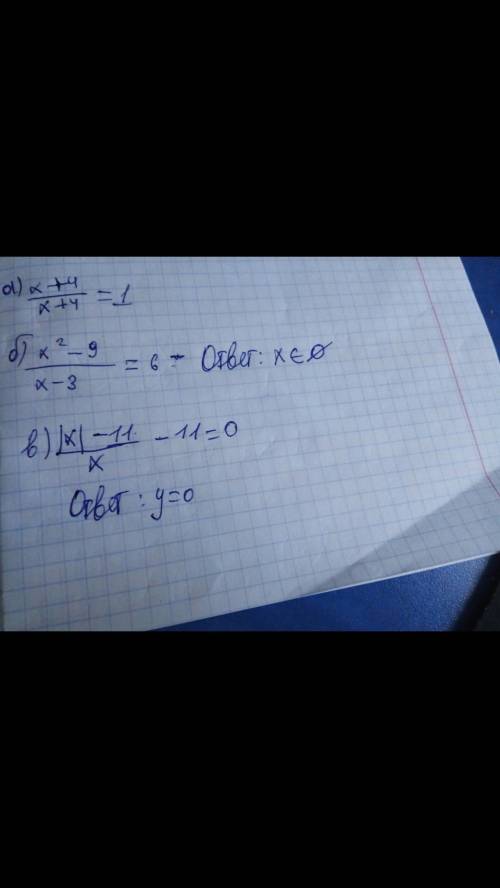 а) x+4/x+4 = 1
б) x² - 9/x - 3 = 6 - Ответ: x ∈ ∅
в) |x| - 11/x - 11 = 0
Ответ: y = 0